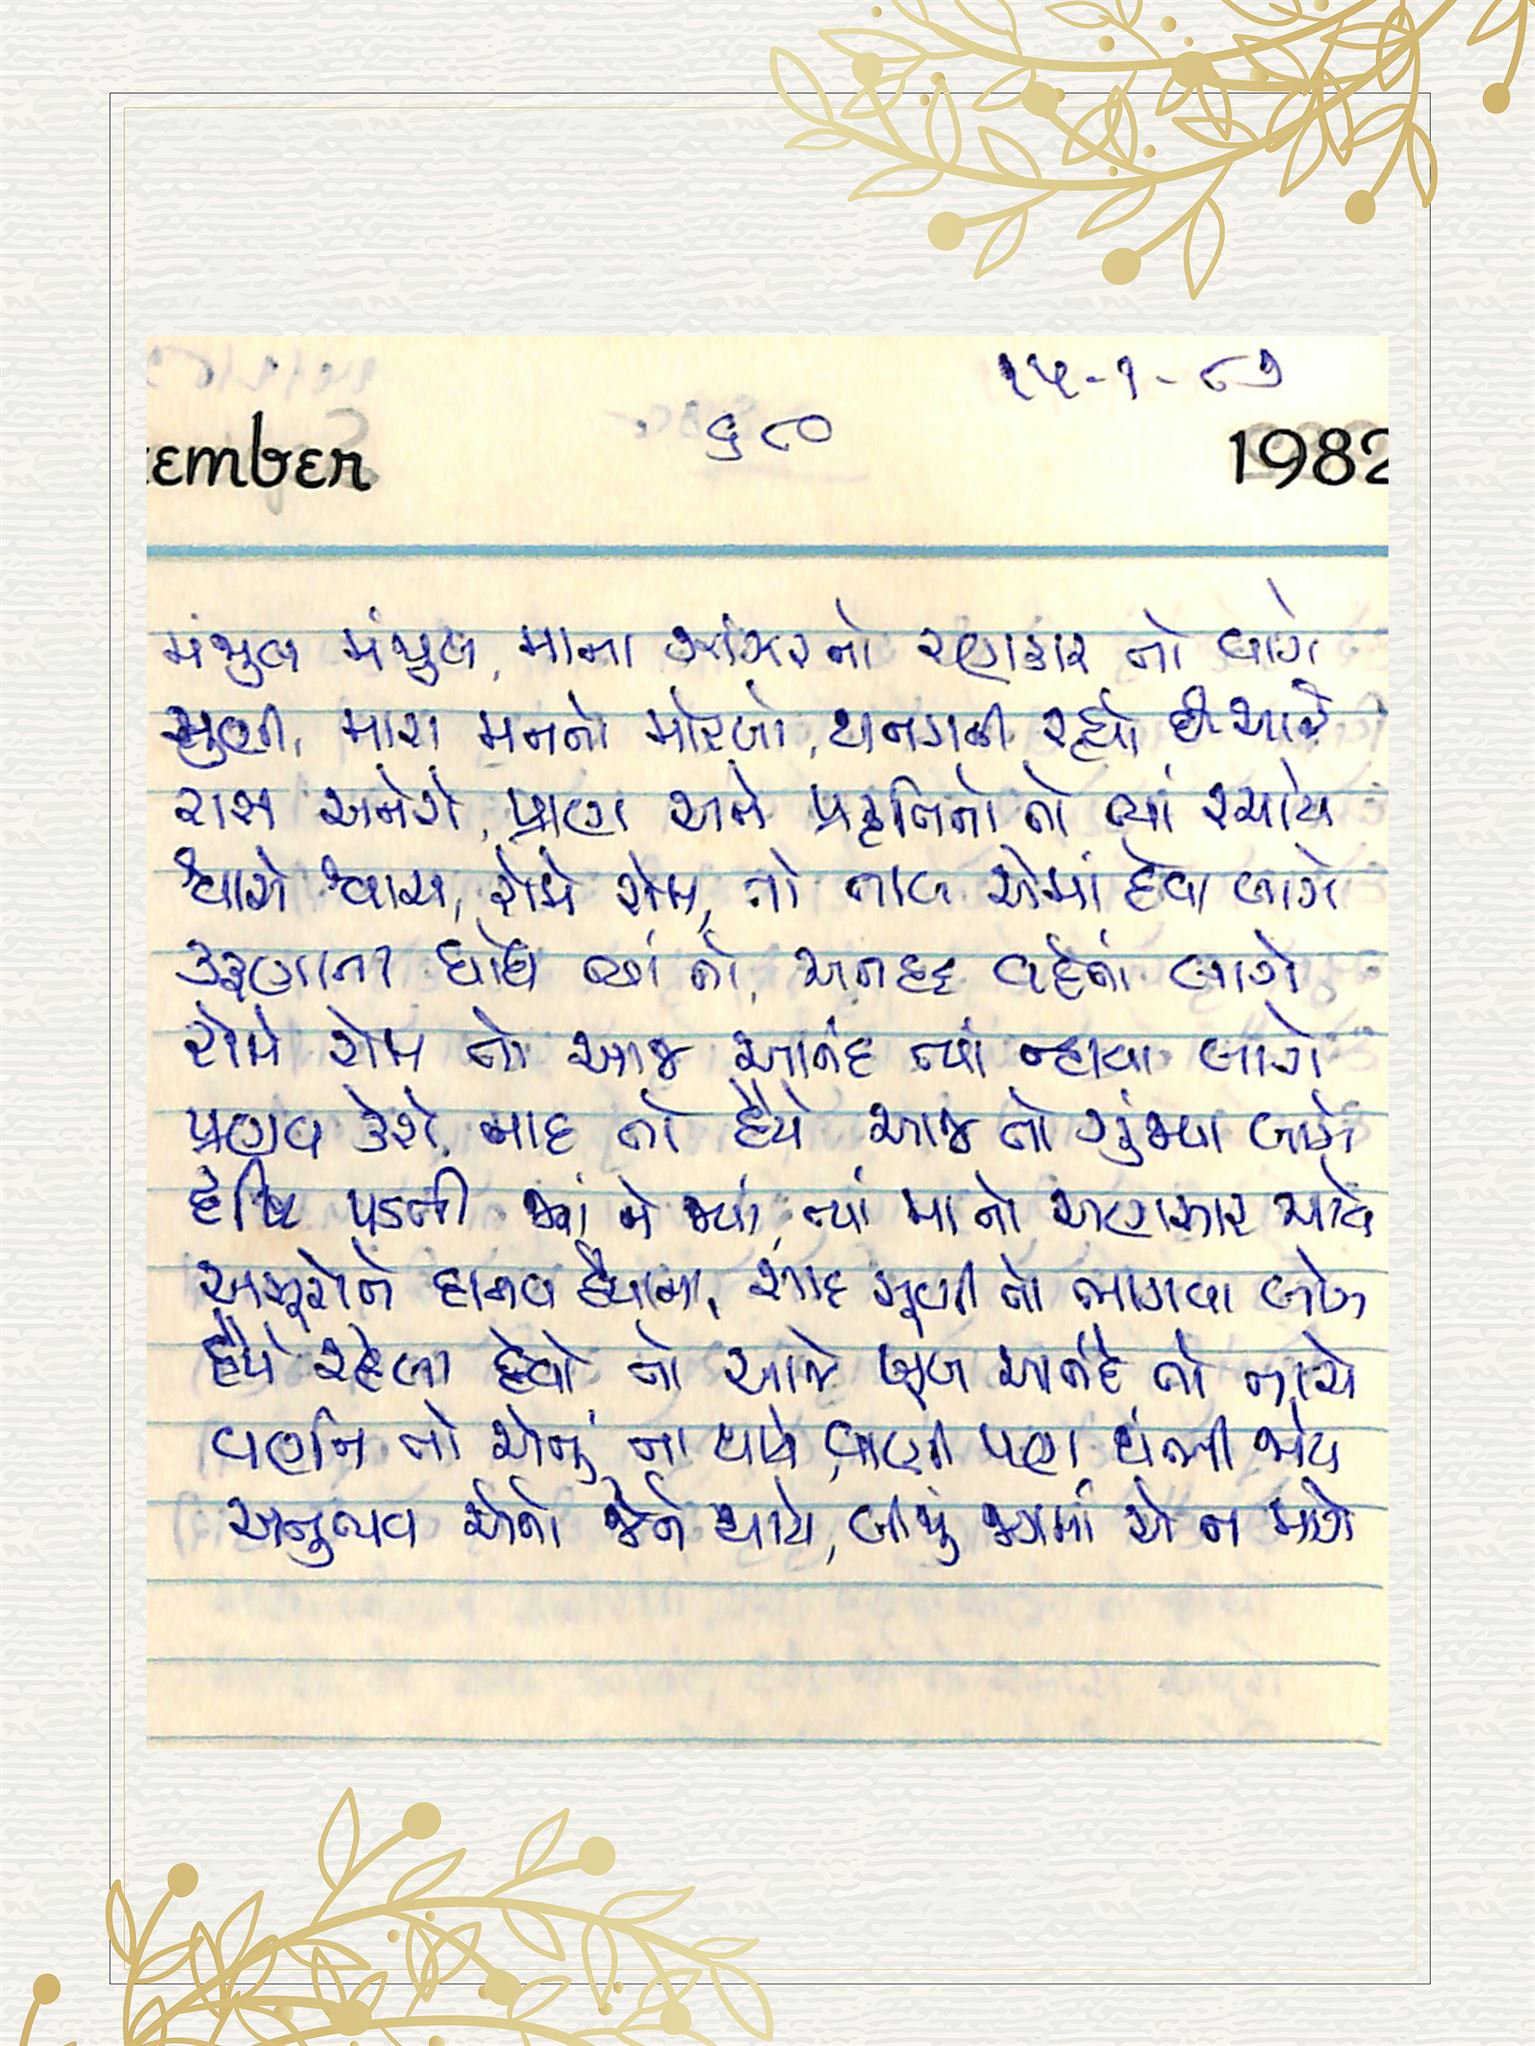 ૧૫-૧-૮૭
૬૮૦
ember
1982
મંજુલ મંજુલ, માના ઝાંઝરનો રણકાર તો વાગે
સુણી, મારા મનનો મોરલો, થનગની રહ્યો છે આજે
રાસ અનેરો, પ્રાણ અને પ્રકૃતિનો તો ત્યાં રચાય
શ્વાસે શ્વાસ, રોમે રોમ, તો તાલ એમાં દેવા લાગે
કરૂણાના ધોધ ત્યાં તો, અનહદ વહેતાં લાગે
રોમે રોમ તો આજ આનંદે ત્યાં ન્હાવા લાગે
પ્રણવ કેરો નાદ તો હૈયે આજ તો ગુંજવા લાગે
દૃષ્ટિ પડતી જ્યાં ને જ્યાં, ત્યાં મા નો અણસાર આવે
અસૂરોને દાનવ હૈયાના, સાદ સૂણી તો ભાગવા લાગે
હૈયે રહેલા દેવો તો આજે ખૂબ આનંદે તો નાચે
વર્ણન તો એનું ના થાયે, વાણી પણ થંભી જાય
અનુભવ એનો જેને થાયે, બીજું જગમાં એ ન માગે